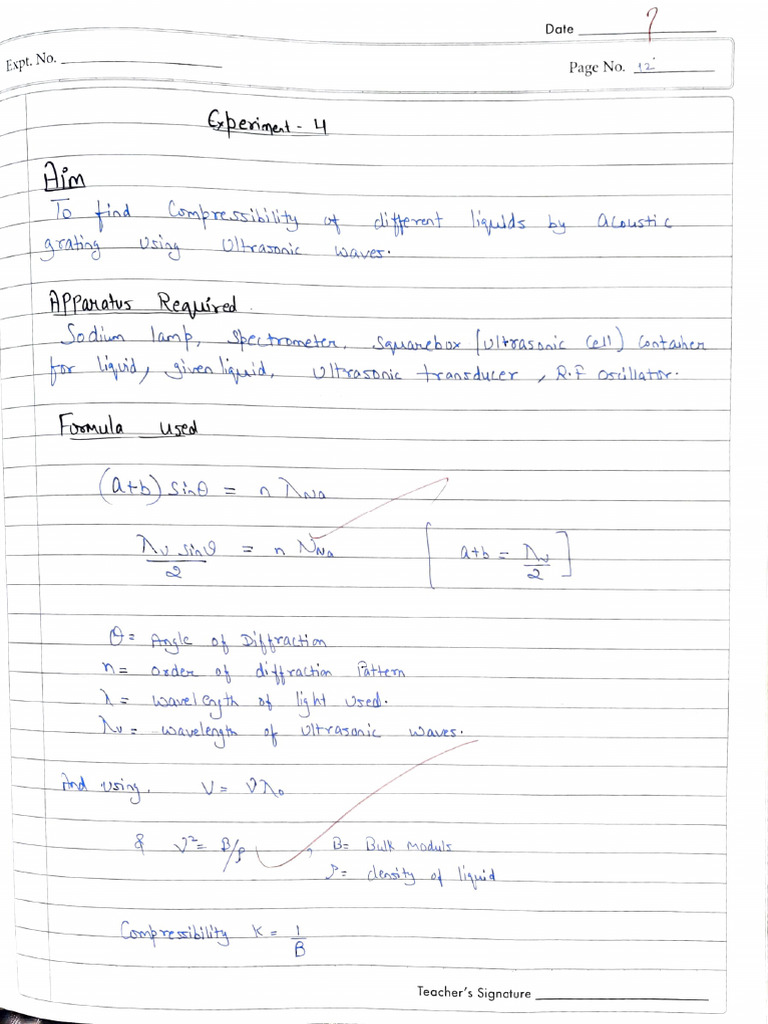 Date ?
Expt. No.
Page No. 12
Experiment - 4
Aim
To find Compressibility of different liquids by acoustic
grating using Ultrasonic waves.
Apparatus Required.
Sodium lamp, spectrometer, squarebox (ultrasonic cell) container
for liquid, given liquid, ultrasonic transducer, R.F oscillator.
Formula used
(a+b) sinθ = n λNa
λv sinθ / 2 = n λNa [ a+b = λv / 2 ]
θ = Angle of Diffraction
n = order of diffraction Pattern
λ = wavelength of light used.
λv = wavelength of ultrasonic waves.
And using, V = νλ₀
& V² = B/ρ, B = Bulk moduls
ρ = density of liquid
Compressibility K = 1/B
Teacher's Signature